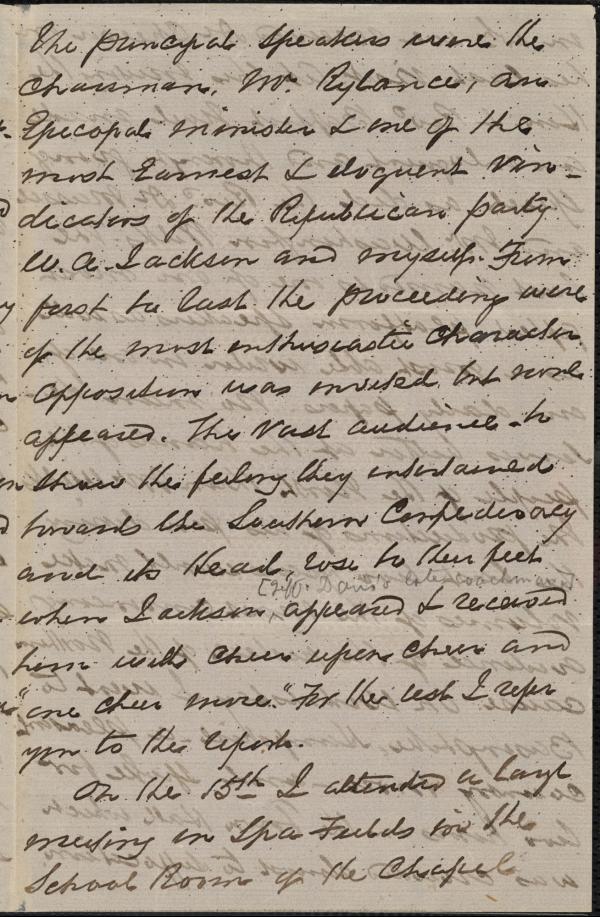 The principal speakers were the
Chairman, Mr. Rylance, an
Episcopal minister & one of the
most Earnest & eloquent Vin-
dicators of the Republican party
W. A. Jackson and myself. From
first to last the proceeding were
of the most enthusiastic character
opposition was invited but none
appeared. The Vast audience to
show the feeling they entertained
towards the Southern Confederacy
and its Head, rose to their feet
[Jeff. Davis's late coachman]
when Jackson, appeared & received
him with cheer upon cheer and
"one cheer more." For the rest I refer
you to the report.
On the 15th I attended a large
meeting in Spa Fields in the
School Room of the Chapel